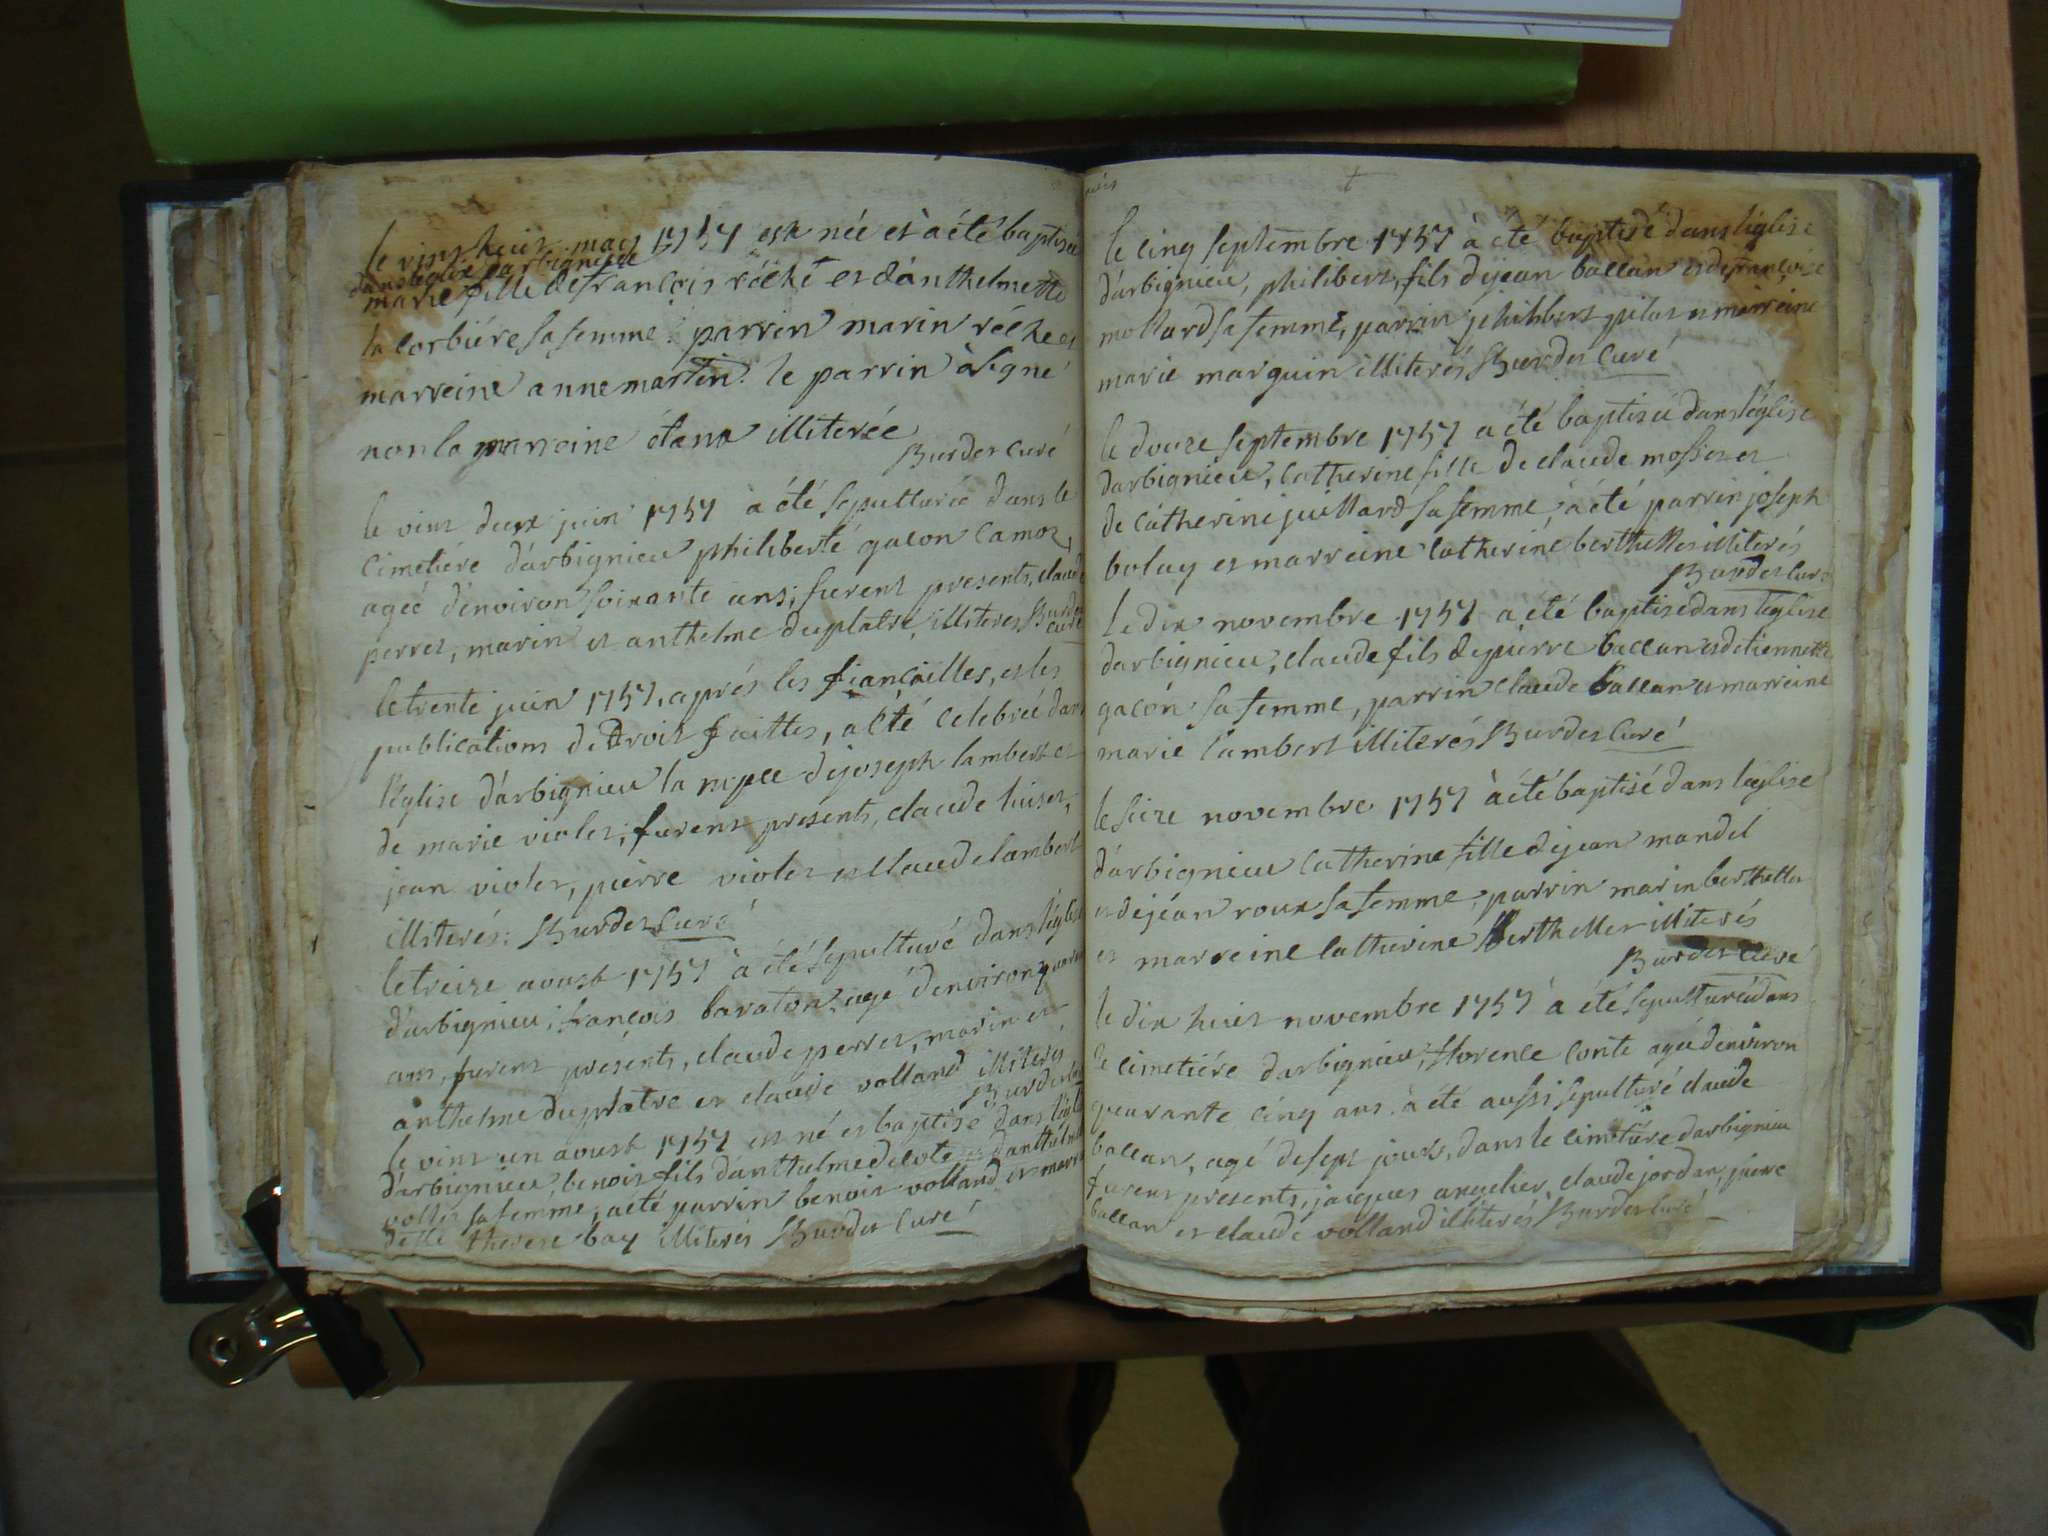 le vint huit mars 1757 est née et à été baptisée
dans leglise darbignieu
marie fille de françois réché et d'anthelmette
la corbiére sa femme. parrin marin réché et
marreine anne martin. le parrin à signé
non la marreine étant illiterée
Burdet curé
le vint deux juin 1757 a été sepulturée dans le
cimetiére d'arbignieu philiberte gacon camoz,
ageé d'environ soixante ans; furent presents, claude
perret, marin et anthelme duplatre, illiteres Burdet
curé
le trente juin 1757, aprés les fiançailles, et les
publications de trois faittes, a été celebrée dans
l'église d'arbignieu la mpce de joseph lambert et
de marie violet; furent présents, claude
jean violet, pierre violet et claude lambert
illiterés: Burdet curé
le treize aoust 1757 à été sepulturé dans l'église
d'arbignieu; françois baraton, agé d'environ quarante
ans, furent présents, claude perret, marin et
anthelme duplatre et claude volland illiteres
Burdet curé
le vint un aoust 1757 est né et baptisé dans l'église
d'arbignieu, benoit fils d'anthelme delote et d'anthelmette
vollet sa femme, a été parrin benoit volland et marreine
therese bay illiterés Burdet curé
le cinq septembre 1757 à été baptisé dans l'église
d'arbignieu, philibert, fils de jean ballan et de françoise
mollard sa femme, parrin philibert pilat et marreine
marie marguin illiterés Burdet curé
le douze septembre 1757 a été baptisée dans l'église
darbignieu, catherine fille de claude mosset et
de catherine juillard sa femme, à été parrin joseph
bolay et marreine catherine berthellet illiterés
Burdet curé
le dix novembre 1757 a été baptisé dans l'église
darbignieu, claude fils de pierre ballan et d'etiennette
gacon sa femme, parrin claude ballan et marreine
marie lambert illiterés Burdet curé
le seize novembre 1757 à été baptisé dans l'église
d'arbignieu catherine fille de jean mandel
et de jean roux sa femme, parrin marin berthellet
et marreine catherine berthellet illiterés
Burdet curé
le dix huit novembre 1757 à été sepulturée dans
le cimetiére darbignieu, florence conte ageé d'environ
quarante cinq ans. à été aussi sepulturé claude
ballan, agé de sept jours, dans le cimetiére d'arbignieu
furent presents, jacques ancelier, claude jordan, pierre
ballan et claude volland illiterés Burdet curé